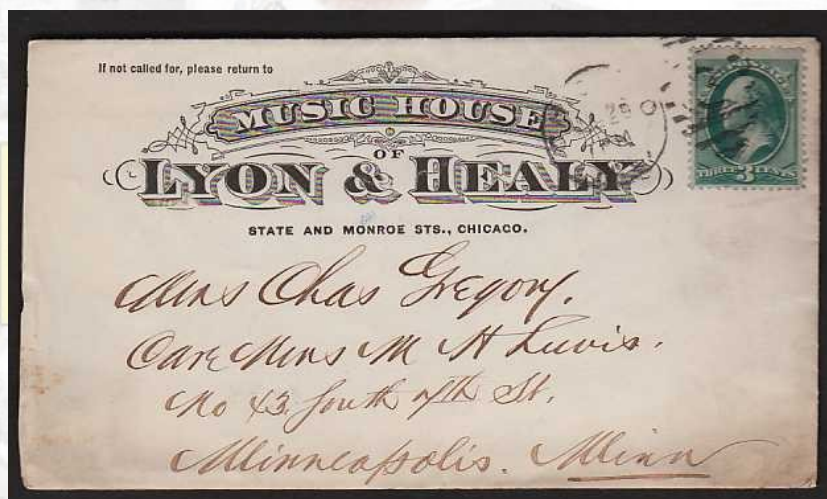 If not called for, please return to
MUSIC HOUSE
OF
LYON & HEALY
STATE AND MONROE STS., CHICAGO.
THREE 3 CENTS
Mrs Chas Gregory.
Care Mrs M H Lewis.
No 43 South 7th St.
Minneapolis. Minn